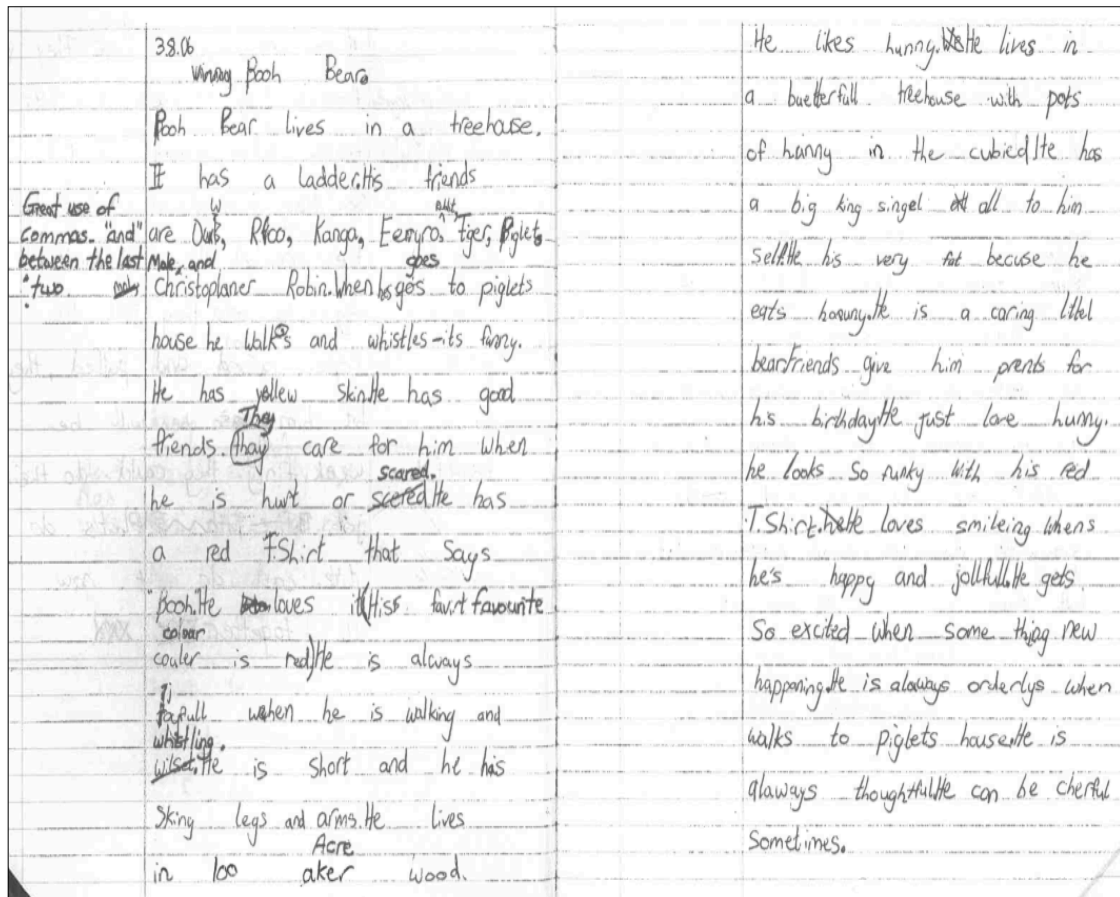 3.8.06
Pooh Bear.
Pooh Bear lives in a treehouse.
It has a ladder.His friends
Great use of
commas. "and"
between the last
two
w
are Owls, Kanga, Tiger, Piglet,
Mole, and
goes
Christoplaner Robin.When he gos to piglets
house he walks and whistles-its funny.
He has yellew skin.He has good
They
friends. thay care for him when
scared.
he is hurt or scered.He has
a red T.Shirt that says
Pooh.He loves it(Hiss favrt favourite
colour
couler is red)He is always
when he is walking and
whistling.
He is short and he has
Sking legs and arms.He lives
Acre
in 100 aker wood.
He likes hunny.He lives in
a buetterfull treehouse with pots
of hanny in the cubied.He has
a big king singel all to him
self.He his very fat becuse he
eats He is a caring littel
bear.friends give him prents for
his birthday.He just love hunny.
he looks so funky with his red
T.Shirt.He loves smileing whens
he's happy and jollfull.He gets
So excited when some thing new
happoning.He is aloways orderlys when
walks to piglets house.He is
alaways thoughtful.He can be cherful
Sometimes.